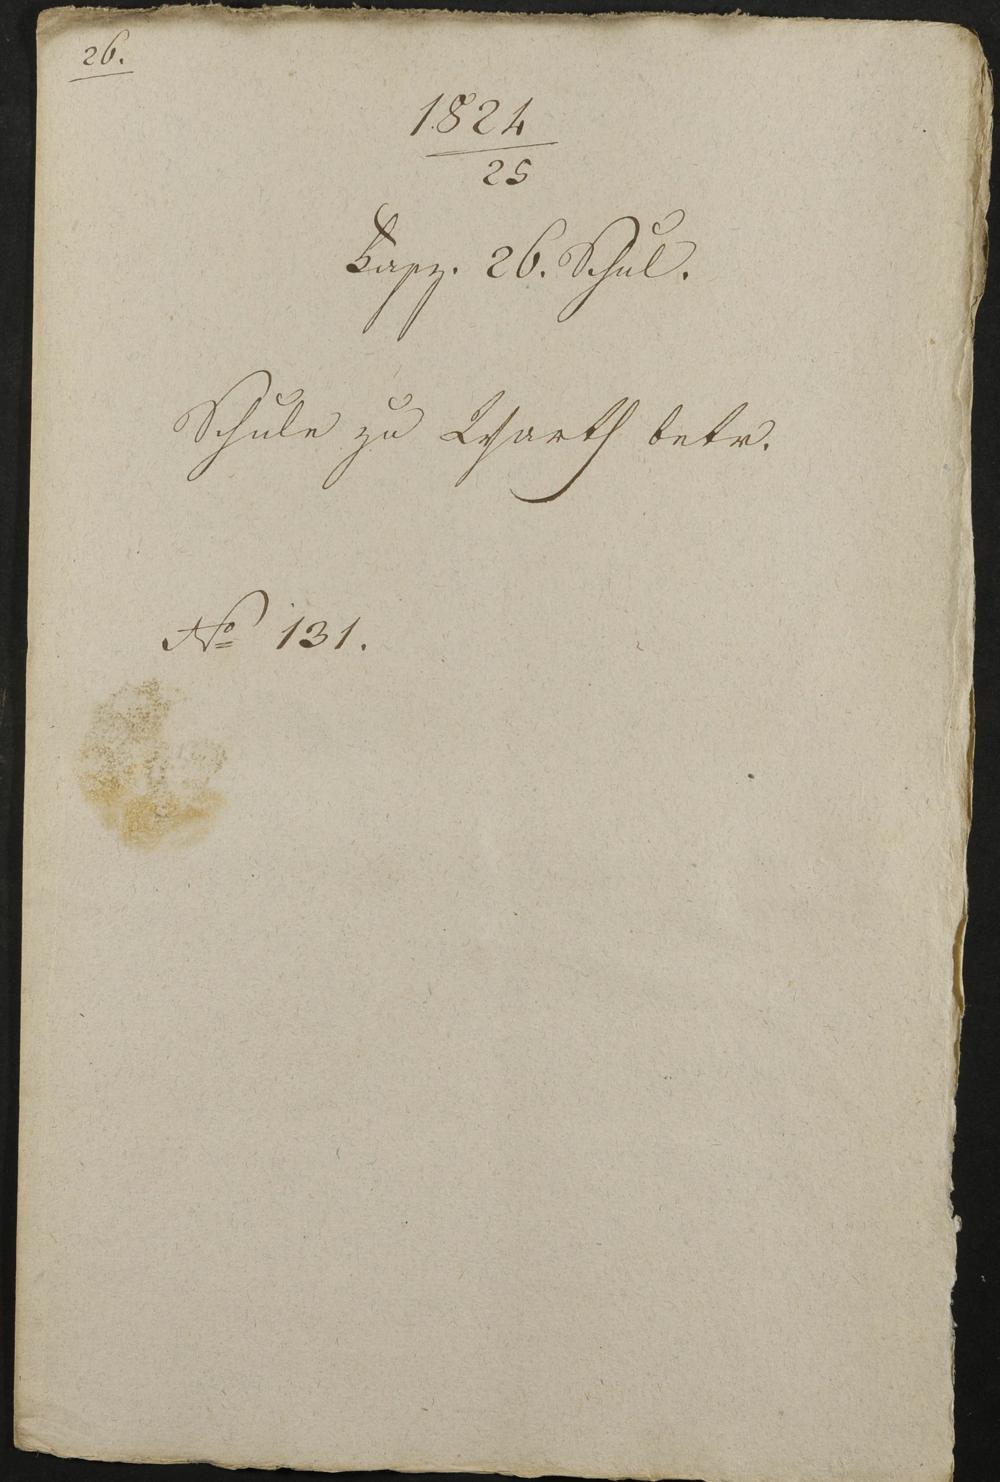 26.
1824
25
26. Schul.
Schule zu Warth betr.
No 131.